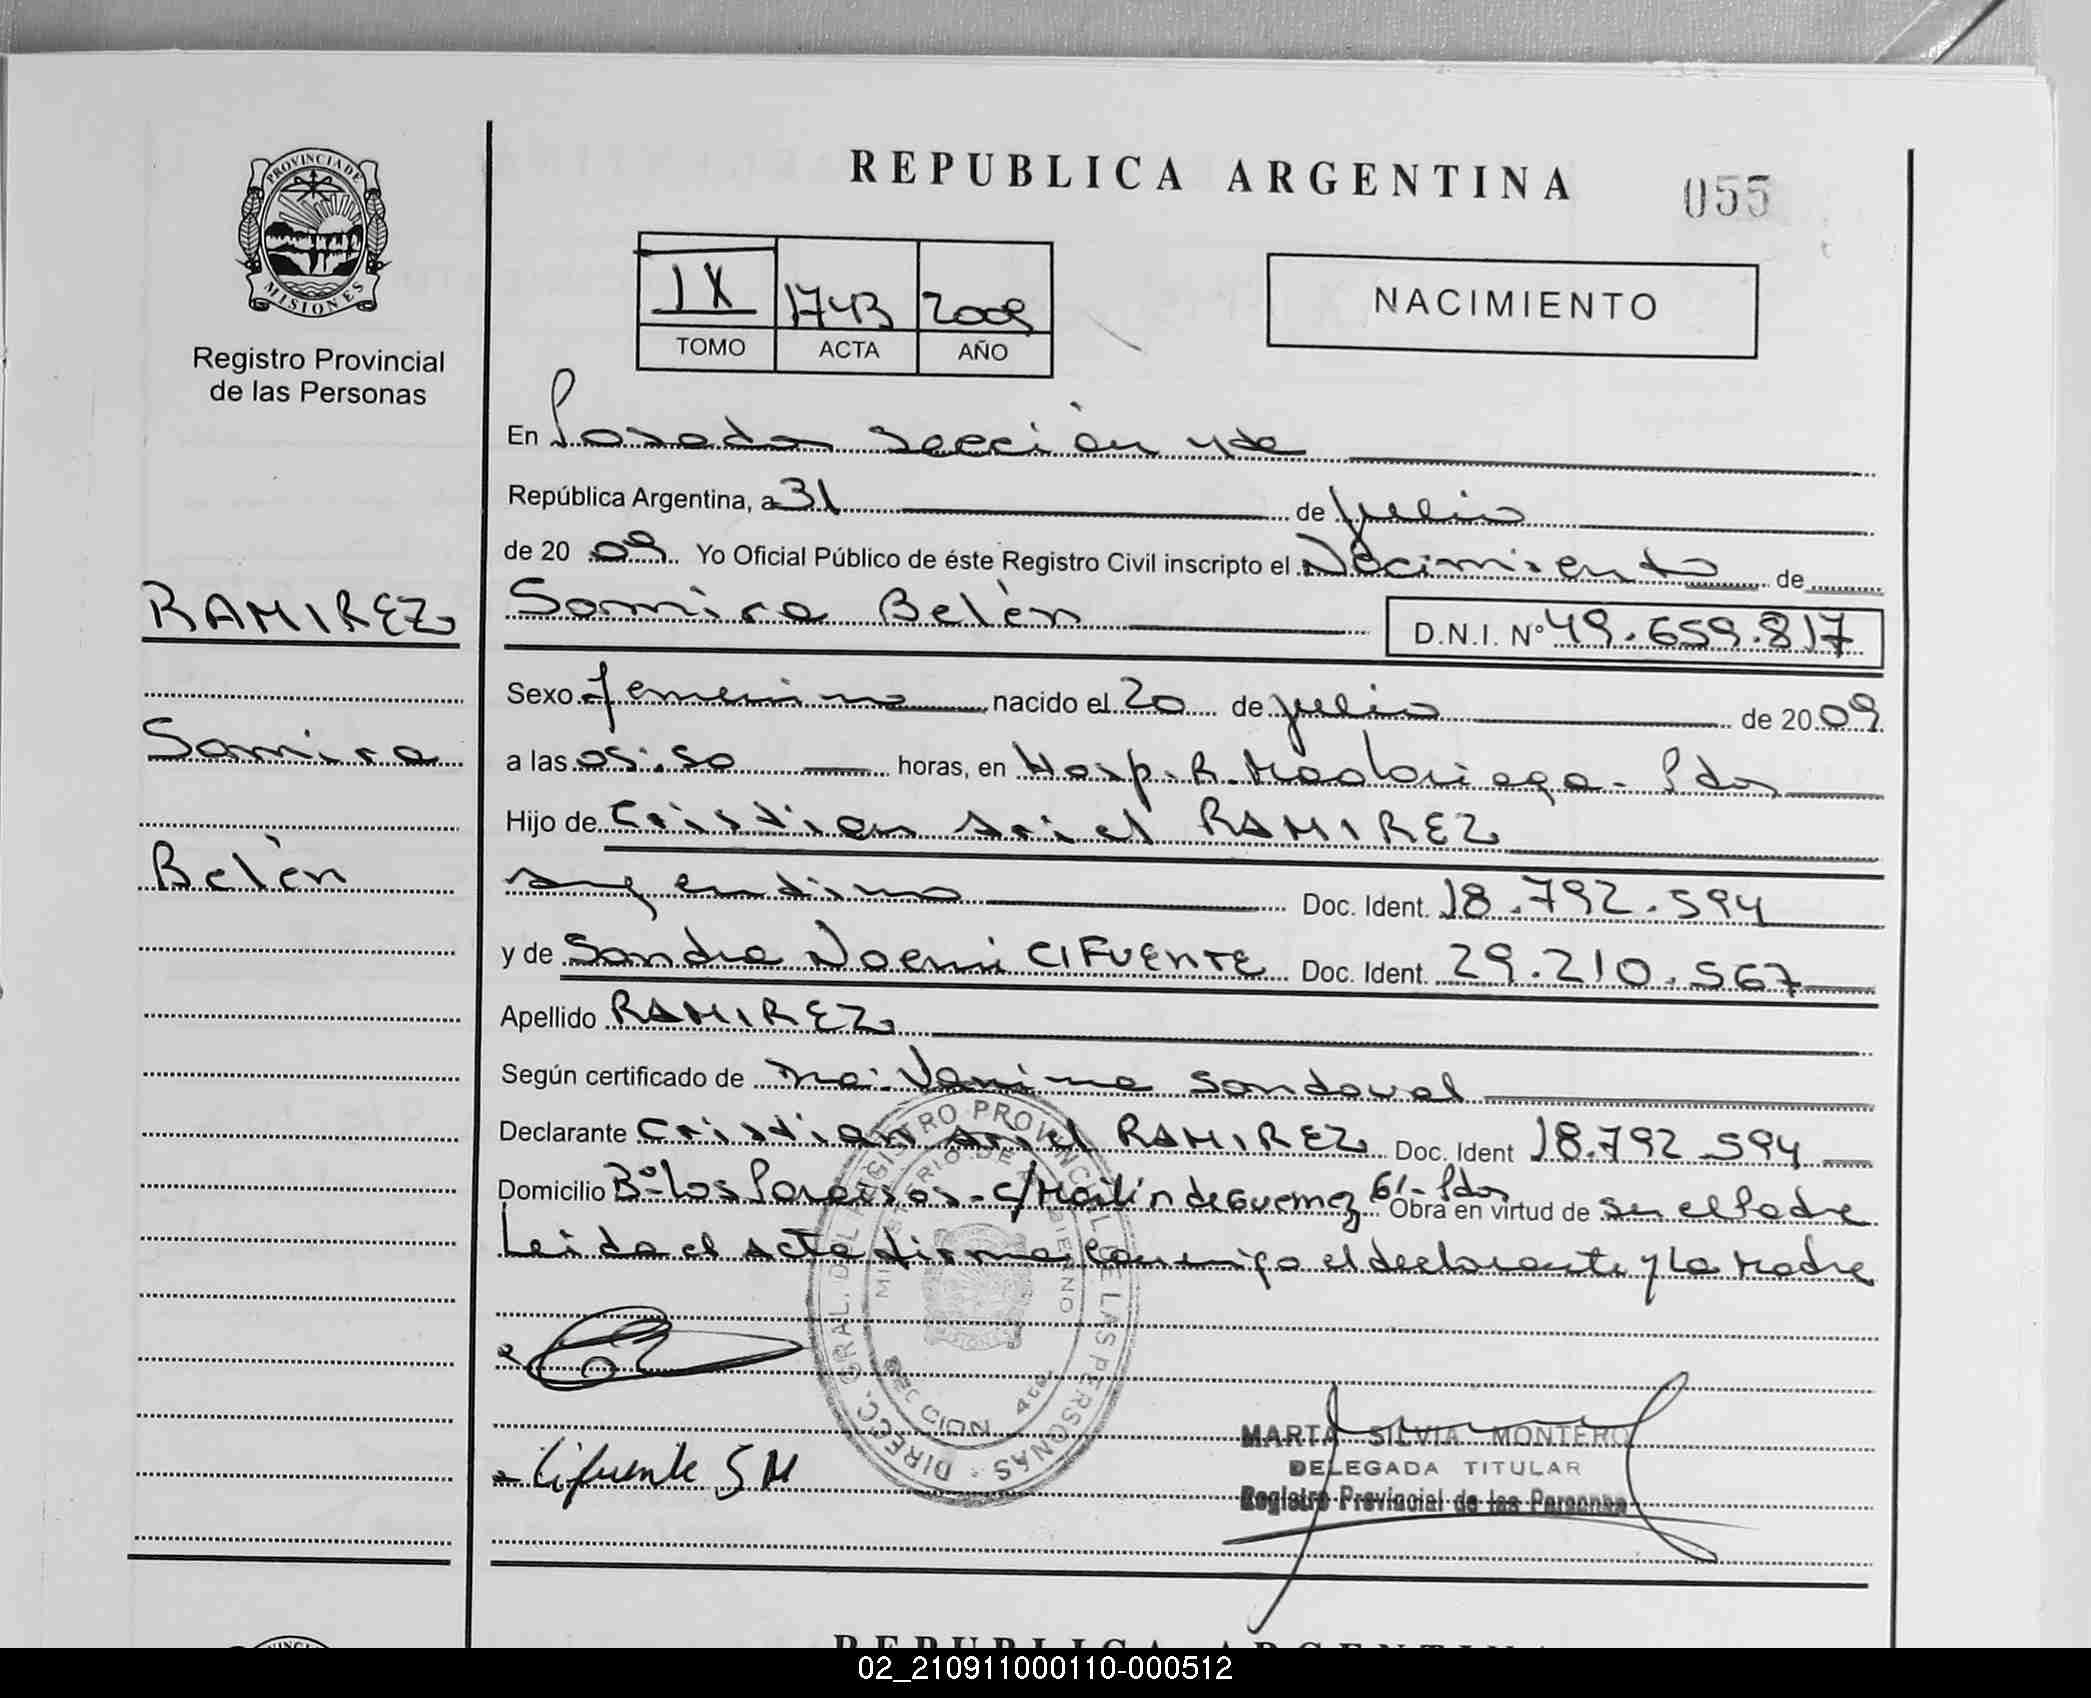 PROVINCIA DE
MISIONES
Registro Provincial
de las Personas
REPUBLICA ARGENTINA
055
IX 1743 2009
TOMO ACTA AÑO
NACIMIENTO
En Posadas sección 4ta
República Argentina, a 31 de julio
de 2009 Yo Oficial Público de éste Registro Civil inscripto el Nacimiento de
RAMIREZ
Samira Belén D.N.I. Nº 49.659.817
Sexo femenino nacido el 20 de julio de 2009
Samira
a las 05:50 horas, en Hosp. R. Madariaga - Pdas
Hijo de Cristian Ariel RAMIREZ
Belén
argentino Doc. Ident. 18.792.594
y de Sandra Noemi CIFUENTE Doc. Ident. 29.210.567
Apellido RAMIREZ
Según certificado de Dra. Vanina Sandoval
Declarante Cristian Ariel RAMIREZ Doc. Ident 18.792.594
Domicilio Bº Los Paraisos - c/ de Guemez 61 - Pdas Obra en virtud de ser el Padre
Leida el acta firma conmigo el declarante y la Madre
DIRECC. GRAL. DEL REGISTRO PROVINCIAL DE LAS PERSONAS
MINISTERIO DE GOBIERNO
MISIONES
Cifuente S N
MARTA SILVIA MONTERO
DELEGADA TITULAR
Registro Provincial de las Personas
REPUBLICA ARGENTINA
02_210911000110-000512